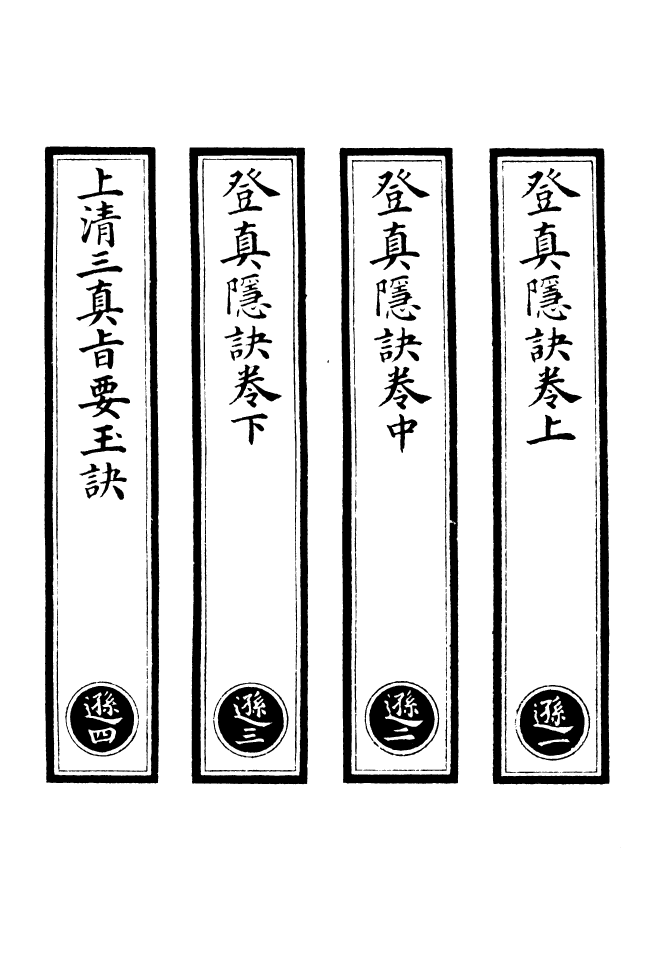 登真隱訣卷上
遜一
登真隱訣卷中
遜二
登真隱訣卷下
遜三
上清三真旨要玉訣
遜四